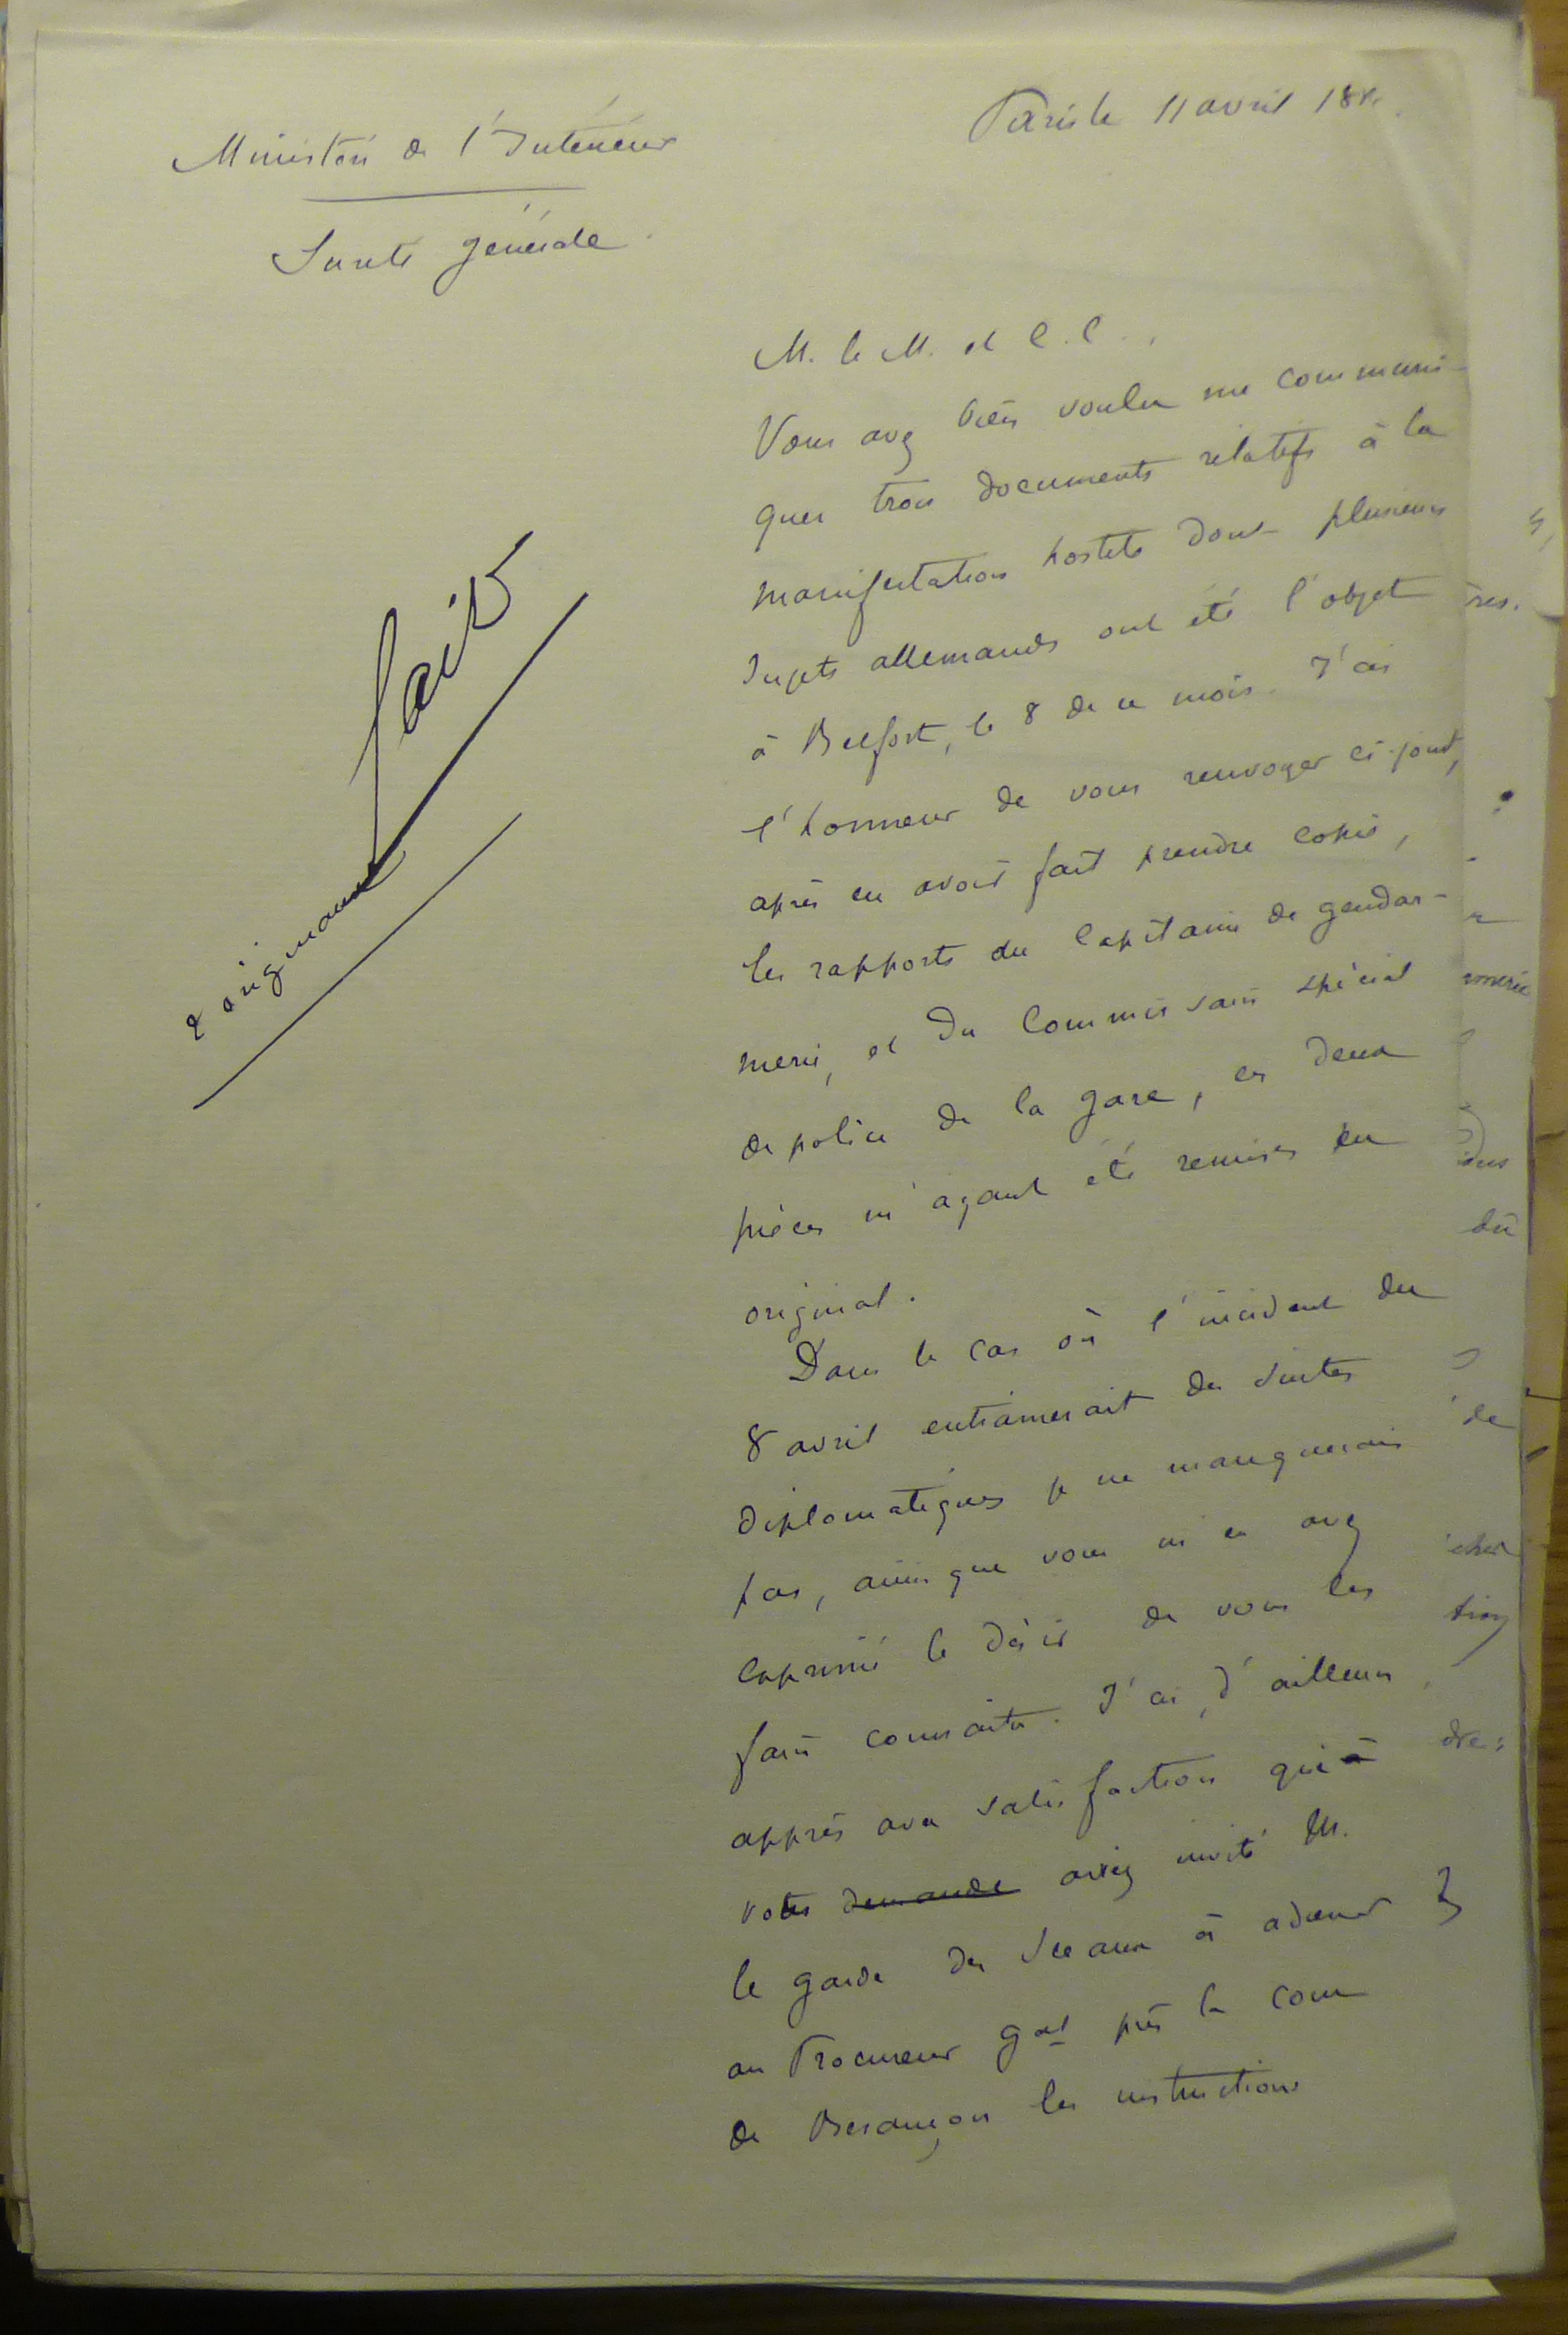 Paris le 11 avril 18
Ministère de l'Intérieur
Sureté générale.
M. le M. et C. C.,
Vous avez bien voulu me communi-
quer trois documents relatifs à la
manifestation hostile dont plusieurs
sujets allemands ont été l'objet
à Belfort, le 8 de ce mois. J'ai
l'honneur de vous renvoyer ci-joint,
après en avoir fait prendre copie,
les rapports du Capitaine de gendar-
merie, et du Commissaire spécial
de police de la gare, ces deux
pièces m'ayant été remises en
original.
Dans le cas où l'incident du
8 avril entrainerait des suites
diplomatiques je ne manquerais
pas, ainsi que vous m'en avez
exprimé le désir de vous les
faire connaitre. J'ai, d'ailleurs,
appris avec satisfaction que
vous demande aviez invité M.
le garde des Sceaux à adresser
au Procureur gal près la cour
de Besançon les instructions
fait
2 originaux